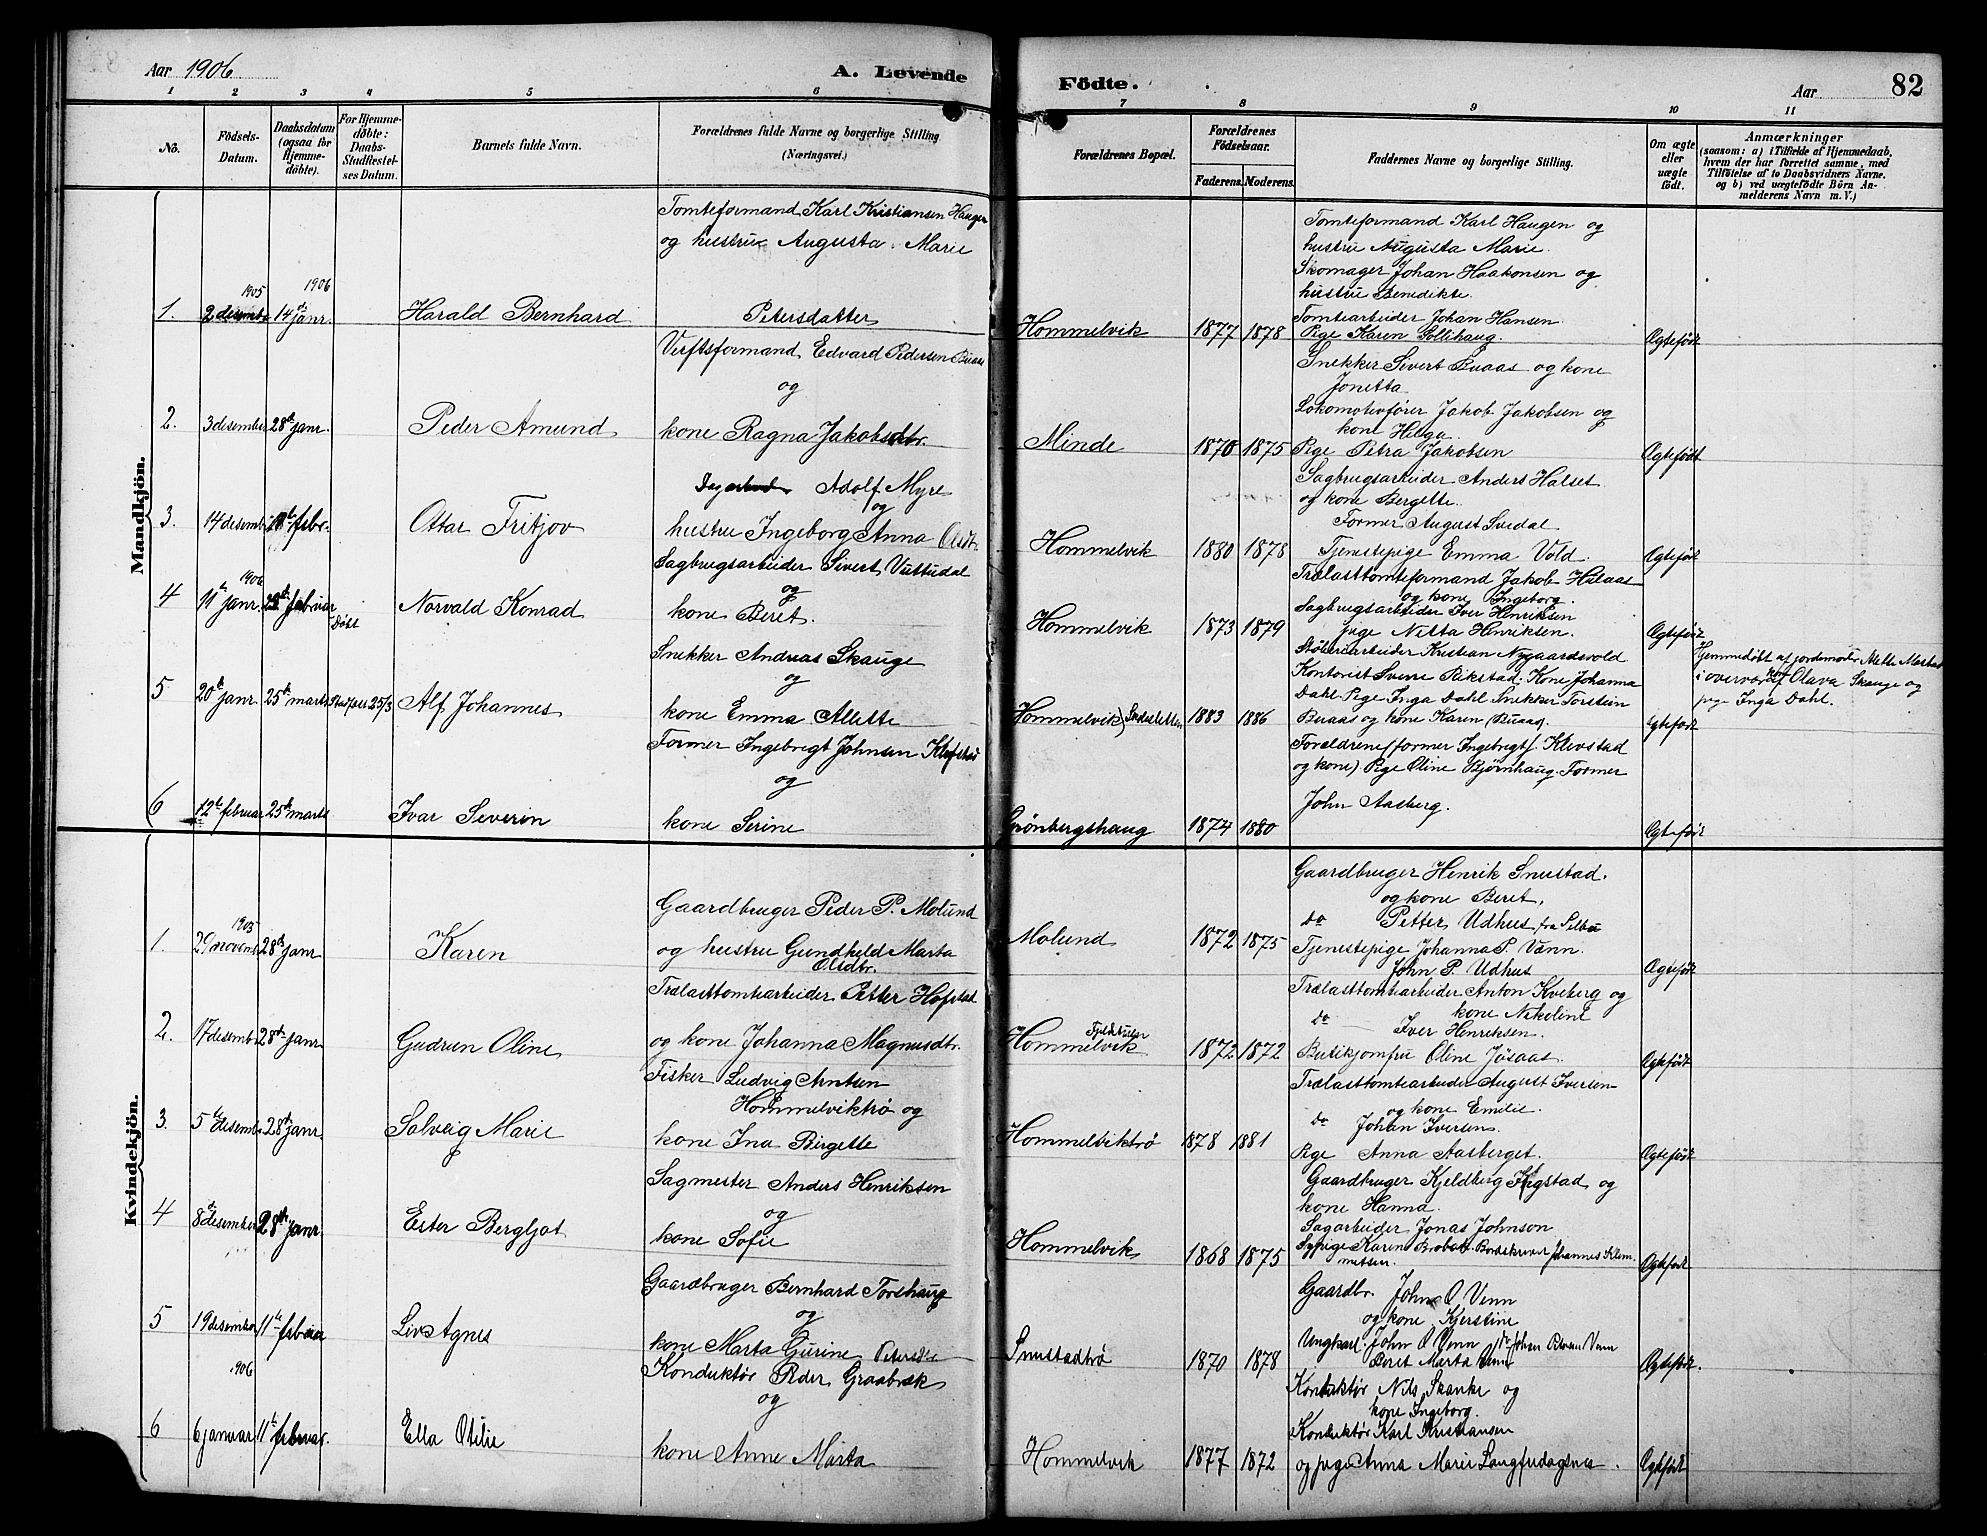 Aar 1906
A. Levende
Födte.
Aar
82
1 2 3 4 5 6 7 8 9 10 11
No.
Födsels-
Datum.
Daabsdatum
(ogsaa for
Hjemme-
döbte).
For Hjemme-
döbte:
Daabs-
Stadfæstel-
ses Datum.
Barnets fulde Navn.
Forældrenes fulde Navne og borgerlige Stilling.
(Næringsvei.)
Forældrenes Bopæl.
Forældrenes
Födselsaar.
Faderens. Moderens.
Faddernes Navne og borgerlige Stilling.
Om ægte
eller
uægte
födt.
Anmærkninger
(saasom: a) i Tilfælde af Hjemmedaab,
hvem der har forrettet samme, med
Tilföielse af to Daabsvidners Navne.
og b) ved uægtefödte Börn An-
melderens Navn m. V.)
Mandkjön.
Tomteformand Karl Kristiansen Haugen
og hustru Augusta Marie
Petersdatter
1. 1905 2 desembr 1906 14de janr. Harald Bernhard
Hommelvik 1877 1878
Tomteformand Karl Haugen og
hustru Augusta Marie.
Skomager Johan Haakonsen og
hustru Benedikte.
Tomtearbeider Johan Hansen.
Pige Karen Sollihaug.
Ægtefödt
Verftsformand Edvard Pedersen Buaas
og
kone Ragna Jakobsdtr.
2. 3 desember 28de janr. Peder Amund
Minde 1870 1875
Snekker Sivert Buaas og kone
Jonetta
Lokomotivfører Jakob Jakobsen og
kone Helga
Pige Petra Jakobsen
Ægtefödt
Adolf Myre
og
hustru Ingeborg Anna
3. 14 desembr febr. Ottar Fritjov
Hommelvik 1880 1878
Sagbrugsarbeider Anders Halset
og kone Bergette.
Former August Svedal
Tjenestepige Emma Vold.
Ægtefödt
Sagbrugsarbeider Sivert Vuttudal
og
kone Beret.
4 1906 11te janr. februar Norvald Konrad
Hommelvik 1873 1879
Trælasttomteformand Jakob Hilaas
og kone Ingeborg.
Sagbrugsarbeider Iver Henriksen
pige Netta Henriksen.
Ægtefödt
Snekker Andreas Skauge
og
kone Emma Alette
5 20de janr. 25de marts Døbt Stadfæst 25/3 Alf Johannes
Hommelvik 1883 1886
Støberiarbeider Kristian Nygaardsvold
Kontorist Sverre Rikstad. Kone Johanna
Dahl. Pige Inga Dahl. Snekker Torstein
Buaas og kone Karen Buaas.
Ægtefødt
Hjemmedøbt af jordemoder
i overvær af Olava Skauge og
pige Inga Dahl.
Former Ingebrigt Johnsen Klefstad
og
kone Serine
6 12te februar 25de marts Ivar Severin
Grönbergshaug 1874 1880
Foreldrene (former Ingebrigt J. Klevstad
og kone). Pige Oline Bjørnhaug. Former
John Aasberg.
Ægtefödt
Kvindekjön.
Gaardbruger Peder P. Molund
og hustru Gundhild Marta
Olsdtr.
1. 1905 29 novembr 28de janr Karen
Molund 1872 1875
Gaardbruger Henrik Snustad.
og kone Beret.
do Petter Udhus fra Selbu
Tjenestepige Johanna P. Venn.
John P. Udhus
Ægtefödt
Trælasttomtearbeider Petter Hofstad
og kone Johanna Magnusdtr.
2. 17 desembr 28de janr Gudrun Oline
Hommelvik 1872 1872
Trælasttomtearbeider Anton Kviberg og
kone Nikoline
do Iver Henriksen.
Butikjomfru Oline Jøsaas.
Ægtefödt
Fisker Ludvig Arntsen
Hommelviktrø og
kone Ina Birgette
3. 5te desembr 28de janr Solveig Marie
Hommelviktrö 1878 1881
Trælasttomtearbeider August Iversen
og kone Emelie.
do Johan Iversens.
Pige Anna Aasberget.
Ægtefödt
Sagmester Anders Henriksen
og
kone Sofie
4 8de desember 28de janr Ester Bergljot
Hommelvik 1868 1875
Gaardbruger Kjeldberg Hegstad og
kone Hanna.
Sagarbeider Jonas Johnson
Sypige Karen Johannes Klem-
metsen.
Ægtefödt
Gaardbruger Bernhard Torshaug
og
kone Marta Gurine Petersdtr
5 19 desember 11te februar Liv Agnes
Snustadtrö 1870 1878
Gaardbr. John O Venn
og kone Kjerstine
Ungkarl John O Venn do Johan Petersen Venn
Beret Marta Venn
Ægtefödt.
Konduktør Peder Graabræk
og
kone Anne Marta
6 1906 6 januar 11te februar. Ella Otelie
Hommelvik 1877 1872
Konduktør Nils Skanke og
kone Ingeborg.
Konduktör Karl Kristiansen
og pige Anna Marie
Ægtefödt